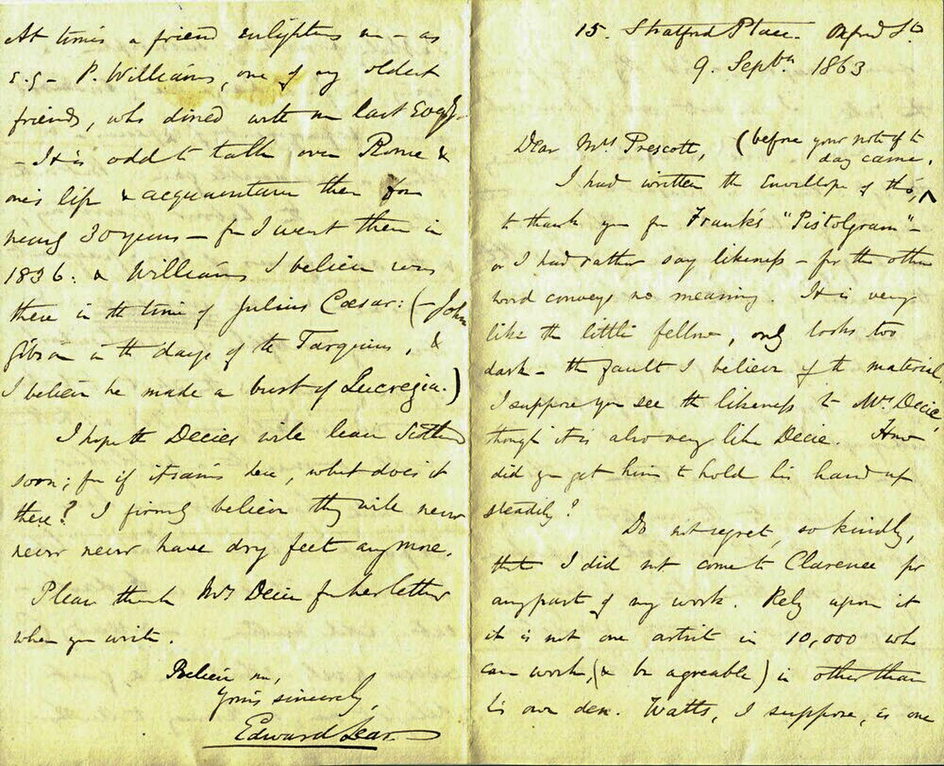 15. Stratford Place. Oxford St.
9. Septbr. 1863
Dear Mrs Prescott, (before your note of to
day came,
I had written the Envellope of this, ^
to thank you for Frank's "Pistolgram" –
or I had rather say likeness – for the other
word conveys no meaning. It is very
like the little fellow, only looks too
dark – the fault I believe of the material.
I suppose you see the likeness to Mrs. Decie,
though it is also very like Decie. How
did you get him to hold his hand up
steadily?
Do not regret, so kindly,
that I did not come to Clarence for
any part of my work. Rely upon it
it is not one artist in 10,000 who
can work, (& be agreable) in other than
his own den. Watts, I suppose, is one
At times a friend enlightens me – as
e.g – P. Williams, one of my oldest
friends, who dined with me last Evg.
– It is odd to talk over Rome &
one's life & acquaintance there for
nearly 30 years – for I went there in
1836: & Williams I believe was
there in the time of Julius Cæsar: (– John
Gibson in the days of the Tarquins, &
I believe he made a bust of Lucrezia.)
I hope the Decies will leave Scotland
soon; for if it rains here, what does it
there? I firmly believe they will never
never never have dry feet anymore.
Please thank Mrs Decie for her letter
when you write.
Believe me,
Yours sincerely,
Edward Lear